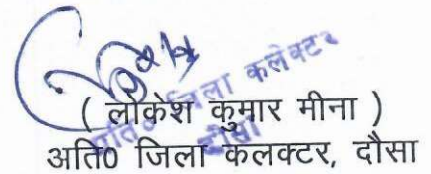 अति० जिला कलेक्टर
दौसा
( लोकेश कुमार मीना )
अति0 जिला कलक्टर, दौसा